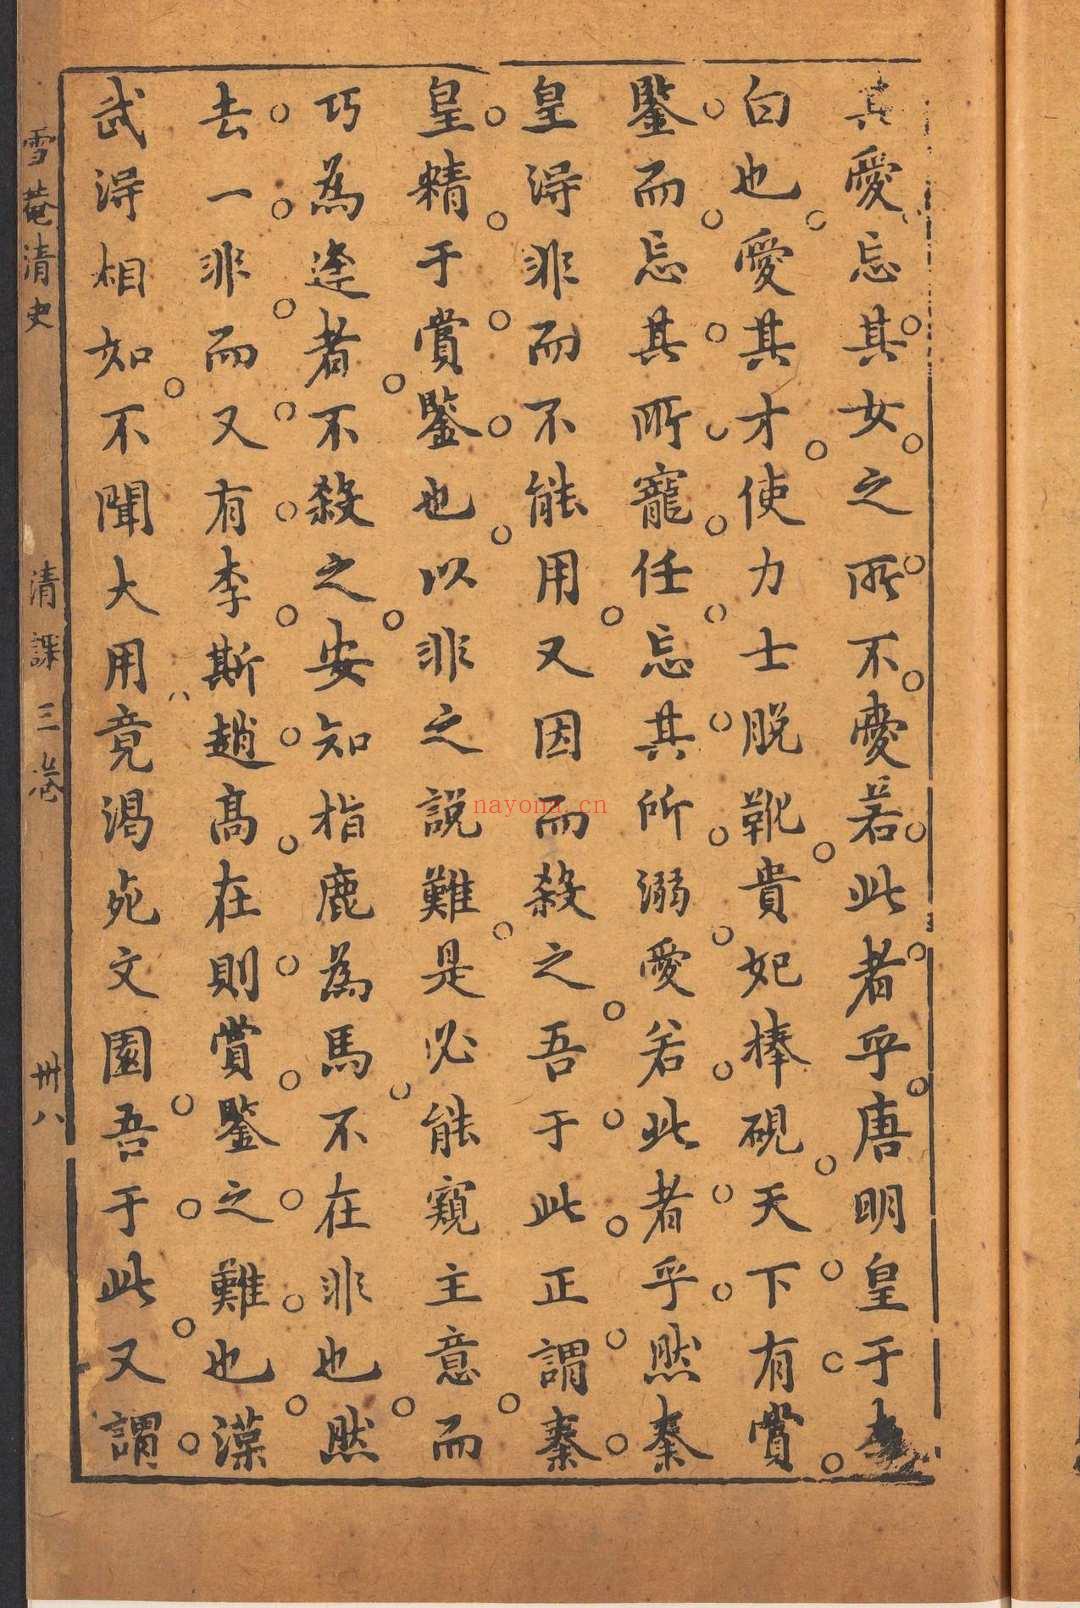 其愛忘其女之所不愛若此者乎唐明皇于李
白也愛其才使力士脱靴貴妃捧硯天下有賞
鑒而忘其所寵任忘其所溺愛若此者乎然秦
皇得非而不能用又因而殺之吾于此正謂秦
皇精于賞鑒也以非之說難是必能窺主意而
巧為逢者不殺之安知指鹿為馬不在非也然
去一非而又有李斯趙高在則賞鑒之難也漢
武得相如不聞大用竟渴死文園吾于此又謂
雪菴清史
清課三卷
卅八
nayona.cn